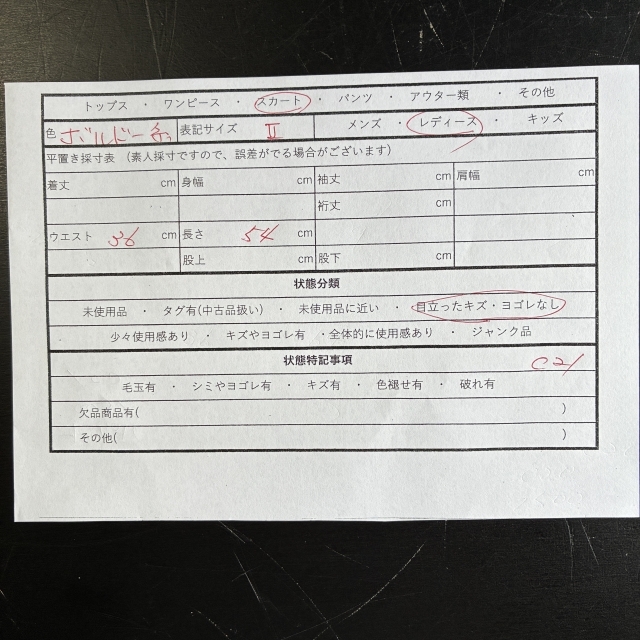 トップス ・ ワンピース ・ スカート ・ パンツ ・ アウター類 ・ その他
色 ボルドー系 表記サイズ Ⅱ メンズ ・ レディース ・ キッズ
平置き採寸表 (素人採寸ですので、誤差がでる場合がございます)
着丈 cm 身幅 cm 袖丈 cm 肩幅 cm
裄丈 cm
ウエスト 36 cm 長さ 54 cm
股上 cm 股下 cm
状態分類
未使用品 ・ タグ有(中古品扱い) ・ 未使用品に近い ・ 目立ったキズ・ヨゴレなし
少々使用感あり ・ キズやヨゴレ有 ・全体的に使用感あり ・ ジャンク品
状態特記事項
C21
毛玉有 ・ シミやヨゴレ有 ・ キズ有 ・ 色褪せ有 ・ 破れ有
欠品商品有( )
その他( )